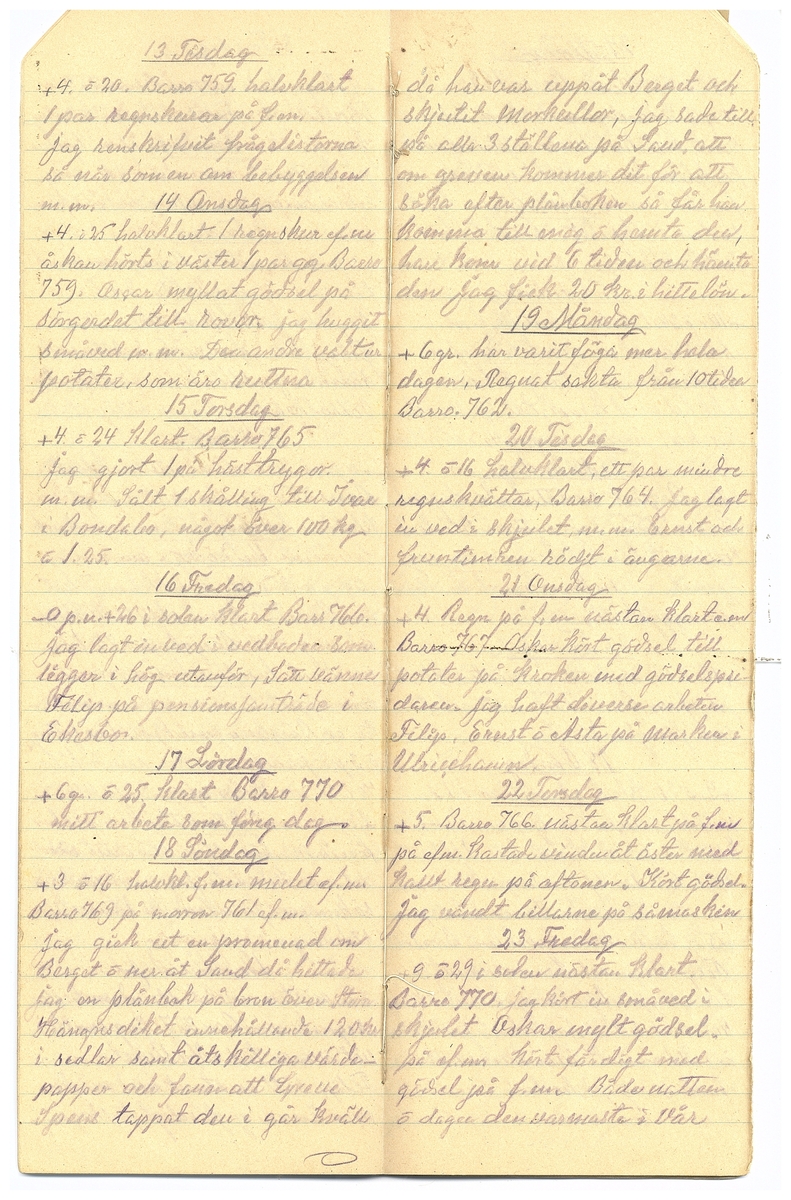 13 Tisdag
+4. o 20. Barro 759. halvklart
1 par regnskurar på f.m.
jag renskrifvit frågelistorna
så när som en om bebyggelsen
m.m. 14 Onsdag
+4. o 25 halvklart 1 regnskur ef.m
åskan hörts i väster 1 par gg, Barro
759. Oscar myllat gödsel på
till rovor, jag huggit
småved m.m. Den andre
potater, som äro ruttna
15 Torsdag
+4 o 24 klart. Barro 765
jag gjort 1 på hästtrygor.
m.m. Sålt 1 skålling till Ivar
i Bondabo, något över 100 kg
o 1.25.
16 Fredag
-0 p.n. +26 i solen klart Barr 766.
jag lagt in ved i vedboden som
legger i hög utanför,
Filip på pensionsfamträde i
Ekesbo.
17 Lördag
+6 gr. o 25 klart Barro 770
mitt arbete som föng dag.
18 Söndag
+3 o 16 halvkl. f.m. mulet ef.m.
Barro 769 på morron 761 ef.m.
jag gick ut en promenad om
Berget o ner åt Sand då hittade
jag en plånbok på bron över Stora
Hängnsdiket innehållande 120 kr
i sedlar samt åtskilliga värde-
papper och fann att Greve
Spens tappat den i går kväll
då han var uppåt Berget och
skjutit Morkullor, jag sade till
på alla 3 ställena på Sand, att
om greven kommer dit för att
söka efter plånboken så får han
komma till mig o hemta den,
han kom vid 6 tiden och hämta
den jag fick 20 kr. i hittelön.
19 Måndag
+6 gr. har varit föga mer hela
dagen, Regnat sakta från 10 tiden
Barro. 762.
20 Tisdag
+4. o 16 halvklart, ett par mindre
regnskvättar, Barro 764. jag lagt
in ved i skjulet, m.m. Ernst och
fruntimren rödjt i ängarne.
21 Onsdag
+4. Regn på f.m nästan klart e.m
Barro 767 Oskar kört gödsel till
potater på kroken med gödselspri-
daren. jag haft diverse arbeten
Filip, Ernst o Asta på marken i
Ulricehamn.
22 Torsdag
+5. Barro 766 nästan klart på f.m
på ef.m. kastade vinden åt öster med
kallt regn på aftonen. Kört gödsel.
jag vändt billarne på såmaskin
23 Fredag
+9 o 29 i solen nästan klart.
Barro 770, jag kört in småved i
skjulet Oskar mylt gödsel.
på ef.m kört färdigt med
gödsel på f.m Både natten
o dagen den varmaste i Vår